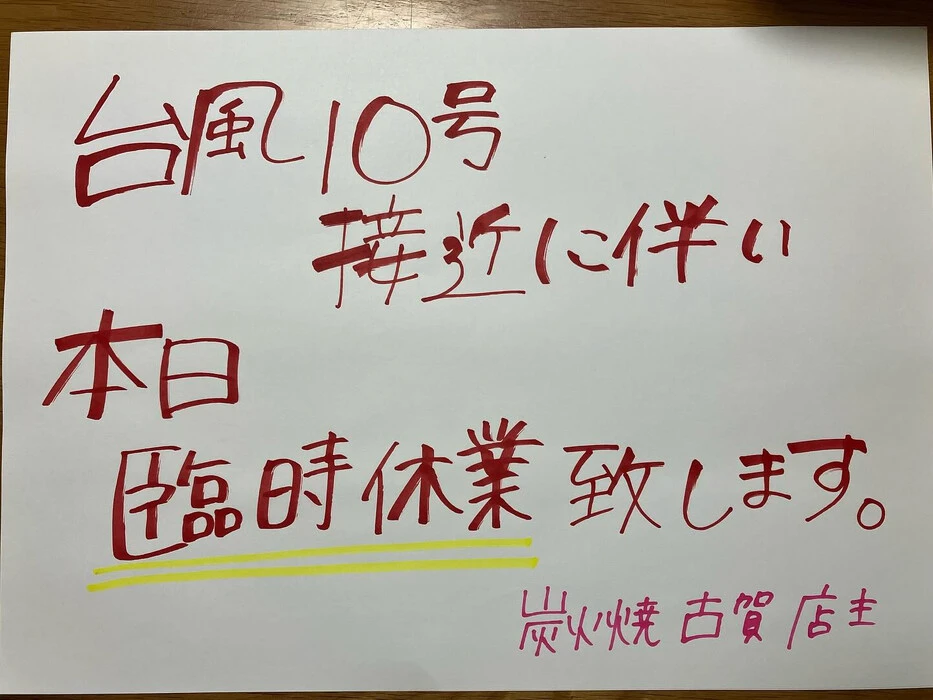 台風10号
接近に伴い
本日
臨時休業致します。
炭火焼 古賀 店主